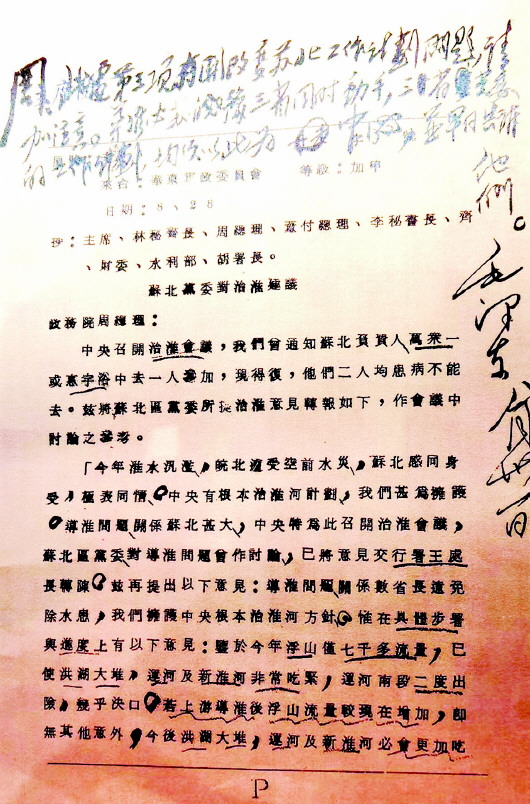 周：此電第三項有關改变苏北工作计划问题，请
加注意。导淮必苏、皖、豫三省同时動手，三省党委
的工作計劃，均须以此为中心，並早日告诉
他們。
毛泽东
來台：華東軍政委員會 等級：加
日期：8、28
抄：主席、林秘書長、周總理、董付總理、李秘書長、齊
、財委、水利部、胡署長。
蘇北黨委對治淮建議
政務院周總理：
中央召開治淮會議，我們曾通知蘇北負責人萬眾一
或惠字浴中去一人參加，現得復，他們二人均患病不能
去。茲將蘇北區黨委所提治淮意見轉報如下，作會議中
討論之參考。
「今年淮水汎濫，皖北遭受空前水災，蘇北感同身
受，極表同情，中央有根本治淮河計劃，我們甚為擁護
，導淮問題關係蘇北甚大，中央特為此召開治淮會議，
蘇北區黨委對導淮問題曾作討論，已將意見交行署王處
長轉陳。茲再提出以下意見：導淮問題關係數省長遠免
除水患，我們擁護中央根本治淮河方針。惟在具體步署
與進度上有以下意見：鑒於今年浮山僅七千多流量，已
使洪湖大堆，運河及新淮河非常吃緊，運河南段二度出
險，幾乎決口。若上游導淮後浮山流量較現在增加，卽
無其他意外，今後洪湖大堆，運河及新淮河必會更加吃
P